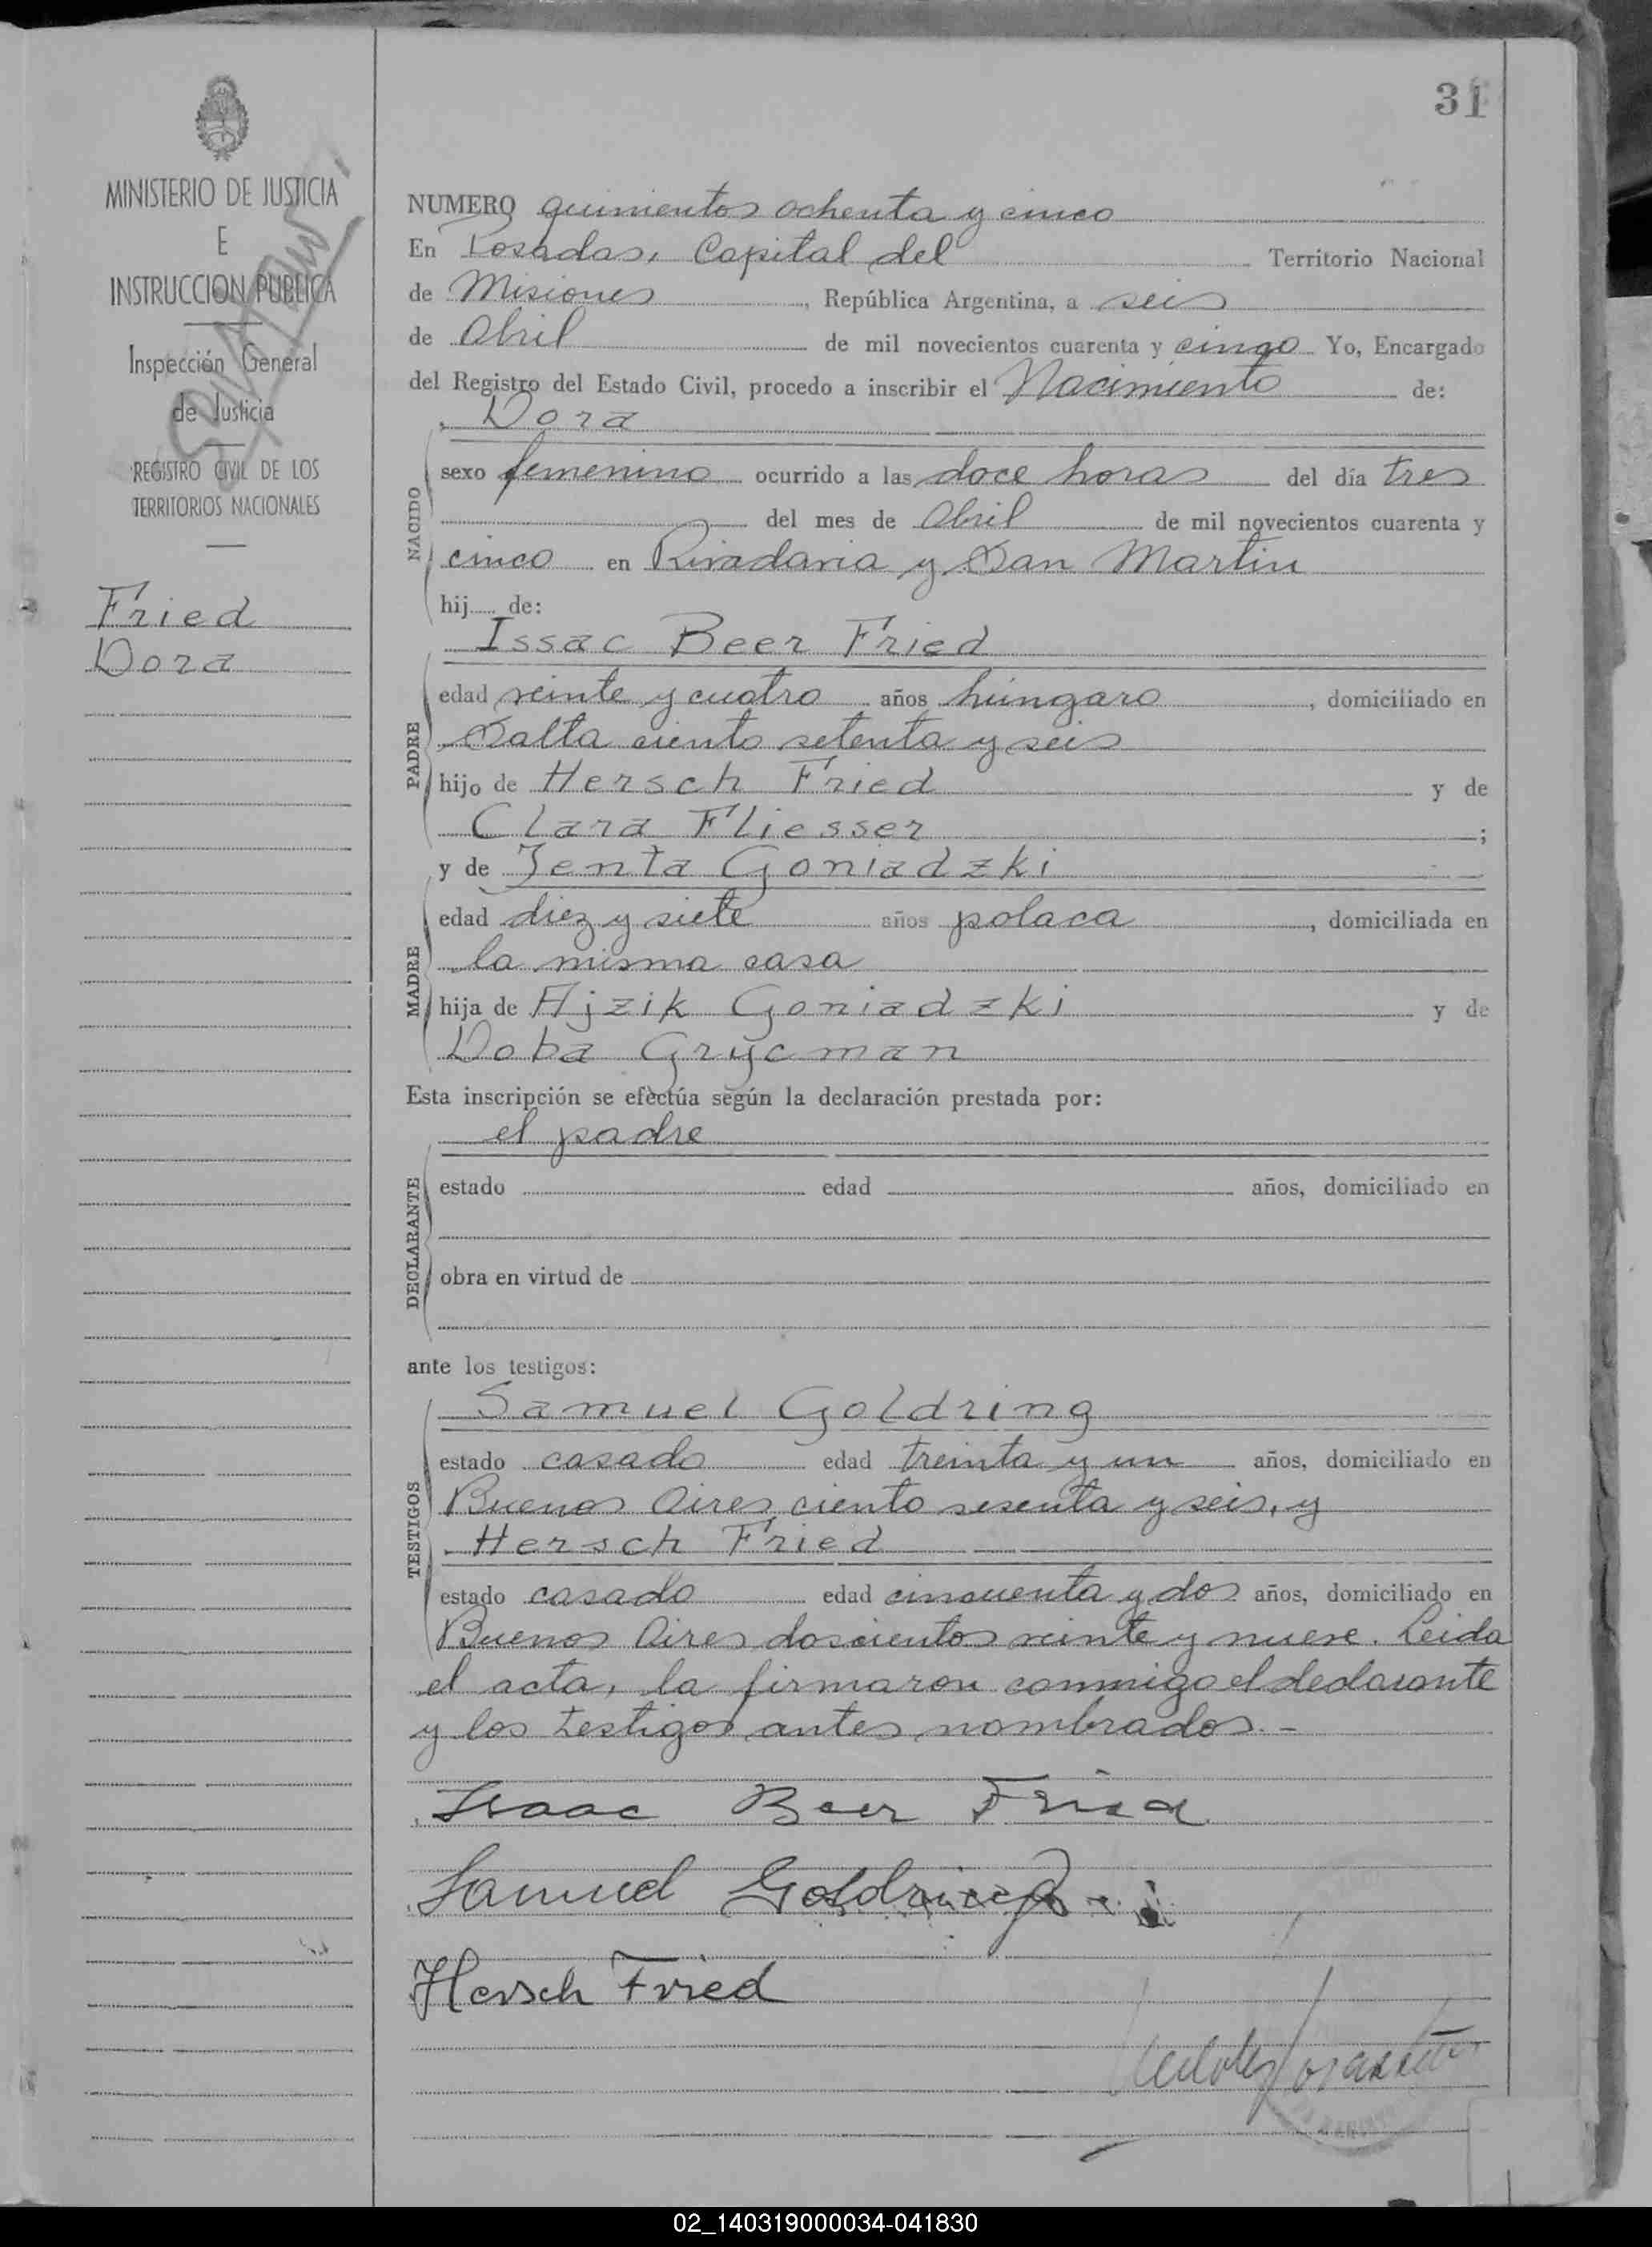 31
MINISTERIO DE JUSTICIA
E
INSTRUCCION PUBLICA
Inspección General
de Justicia
REGISTRO CIVIL DE LOS
TERRITORIOS NACIONALES
Fried
Dora
NUMERO quinientos ochenta y cinco
En Posadas, Capital del Territorio Nacional
de Misiones, República Argentina, a seis
de Abril de mil novecientos cuarenta y cinco Yo, Encargado
del Registro del Estado Civil, procedo a inscribir el Nacimiento de:
Dora
NACIDO
sexo femenino ocurrido a las doce horas del día tres
del mes de Abril de mil novecientos cuarenta y
cinco en Rivadavia y San Martin
hij de:
Issac Beer Fried
PADRE
edad veinte y cuatro años húngaro, domiciliado en
Salta ciento setenta y seis
hijo de Hersch Fried y de
Clara Fliesser;
y de Jenta Goniadzki
MADRE
edad diez y siete años polaca, domiciliada en
la misma casa
hija de Ajzik Goniadzki y de
Doba Grycman
Esta inscripción se efectúa según la declaración prestada por:
el padre
DECLARANTE
estado edad años, domiciliado en
obra en virtud de
ante los testigos:
Samuel Goldring
TESTIGOS
estado casado edad treinta y un años, domiciliado en
Buenos Aires ciento sesenta y seis, y
Hersch Fried
estado casado edad cincuenta y dos años, domiciliado en
Buenos Aires doscientos veinte y nueve. Leida
el acta, la firmaron conmigo el declarante
y los testigos antes nombrados.-
Isaac Beer Fried
Samuel Goldring
Hersch Fried
02_140319000034-041830